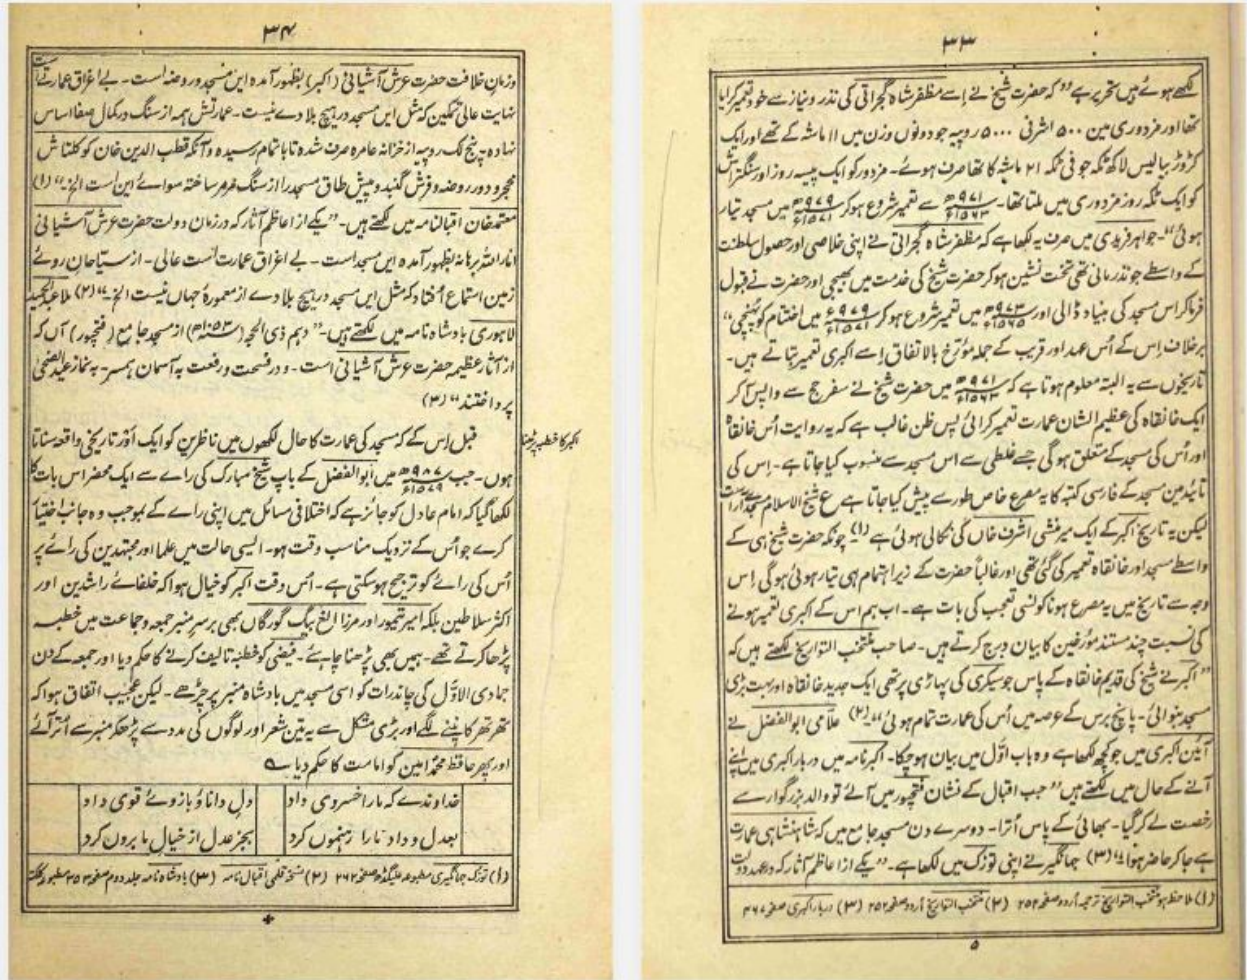 ۳۳
لکھے ہوئے ہیں تحریر ہے "کہ حضرت شیخ نے اسے مظفر شاہ گجراتی کی نذر و نیاز سے خود تعمیر کرایا
تھا اور مزدوری مین ۵۰۰ اشرفی ۵۰۰۰ روپیہ جو دونوں وزن میں ۱۱ ماشہ کے تھے اور ایک
کڑوڑ بیالیس لاکھ ٹکہ جو فی ٹکہ ۲۱ ماشہ کا تھا صرف ہوئے۔ مزدور کو ایک پیسہ روز اور سنگتراش
کو ایک ٹکہ روز مزدوری میں ملتا تھا۔ ۹۷۱ھ ۱۵۶۳ء سے تعمیر شروع ہو کر ۹۷۹ھ ۱۵۷۱ء میں مسجد تیار
ہوئی"۔ جواہر فریدی میں صرف یہ لکھا ہے کہ مظفر شاہ گجراتی نے اپنی خلاصی اور حصول سلطنت
کے واسطے جو نذر مانی تھی تخت نشین ہو کر حضرت شیخ کی خدمت میں بھیجی اور حضرت نے قبول
فرما کر اس مسجد کی بنیاد ڈالی اور ۹۷۳ھ ۱۵۶۵ء میں تعمیر شروع ہو کر ۹۷۹ھ ۱۵۷۱ء میں اختتام کو پہنچی"
برخلاف اس کے اُس عہد اور قریب کے جملہ مؤرخ بالاتفاق اسے اکبری تعمیر بتاتے ہیں۔
تاریخوں سے یہ البتہ معلوم ہوتا ہے کہ ۹۷۱ھ ۱۵۶۳ء میں حضرت شیخ نے سفر حج سے واپس آ کر
ایک خانقاہ کی عظیم الشان عمارت تعمیر کرائی پس ظن غالب ہے کہ یہ روایت اُس خانقاہ
اور اُس کی مسجد کے متعلق ہوگی جسے غلطی سے اس مسجد سے منسوب کیا جاتا ہے۔ اس کی
تائید مین مسجد کے فارسی کتبہ کا یہ مصرع خاص طور سے پیش کیا جاتا ہے ع شیخ الاسلام مسجد آراست
لیکن یہ تاریخ اکبر کے ایک میر منشی اشرف خاں کی نکالی ہوئی ہے (۱) چونکہ حضرت شیخ ہی کے
واسطے مسجد اور خانقاہ تعمیر کی گئی تھی اور غالباً حضرت کے زیر اہتمام ہی تیار ہوئی ہوگی اس
وجہ سے تاریخ میں یہ مصرع ہونا کونسی تعجب کی بات ہے۔ اب ہم اس کے اکبری تعمیر ہونے
کی نسبت چند مستند مؤرخین کا بیان درج کرتے ہیں۔ صاحب منتخب التواریخ لکھتے ہیں کہ
"اکبر نے شیخ کی قدیم خانقاہ کے پاس جو سیکری کی پہاڑی پر تھی ایک جدید خانقاہ اور بہت بڑی
مسجد بنوائی۔ پانچ برس کے عرصہ میں اُس کی عمارت تمام ہوئی" (۲) علامی ابوالفضل نے
آئین اکبری میں جو کچھ لکھا ہے وہ باب اوّل میں بیان ہو چکا۔ اکبر نامہ میں دربار اکبری میں اپنے
آنے کے حال میں لکھتے ہیں "جب اقبال کے نشان فتحپور میں آئے تو والد بزرگوار سے
رخصت لے کر گیا۔ بھائی کے پاس اُترا۔ دوسرے دن مسجد جامع میں کہ شاہنشاہی عمارت
ہے جا کر حاضر ہوا" (۳) جہانگیر نے اپنی توزک میں لکھا ہے۔ "یکے از اعاظم آثار کہ در عہد دولت
(۱) ملاحظہ ہو منتخب التواریخ ترجمہ اُردو صفحہ ۲۵۲ (۲) منتخب التواریخ اُردو صفحہ ۲۵۲ (۳) دربار اکبری صفحہ ۴۶۷
۵
۳۴
وزمان خلافت حضرت عرش آشیانیؒ (اکبر) بظہور آمدہ این مسجد و روضہ است۔ بے اغراق عمارتے است
نہایت عالی تمکین کہ مثل ایں مسجد در ہیچ بلادے نیست۔ عمارتش ہمہ از سنگ در کمال صفا اساس
نہادہ پنج لک روپیہ از خزانہ عامرہ صرف شدہ تا باتمام رسیدہ و آنکہ قطب الدین خان کوکلتاش
محجر و دور روضہ و فرش گنبد و پیش طاق مسجد را از سنگ مرمر ساختہ سوائے این است الخ۔" (۱)
معتمد خان اقبالنامہ میں لکھتے ہیں۔ "یکے از اعاظم آثار کہ در زمان دولت حضرت عرش آشیانی
انار اللہ برہانہ بظہور آمدہ ایں مسجد است۔ بے اغراق عمارت است عالی۔ از سیاحان روئے
زمین استماع اُفتاد کہ مثل ایں مسجد در ہیچ بلادے از معمورۂ جہاں نیست الخ۔" (۲) ملا عبدالحمید
لاہوری بادشاہ نامہ میں لکھتے ہیں۔ "دہم ذی الحجہ (۱۰۵۳ھ) از مسجد جامع (فتحپور) آں کہ
از آثار عظیمہ حضرت عرش آشیانی است۔ و در فسحت و رفعت بہ آسمان ہمسر۔ بہ نماز عید الضحیٰ
پرداختند" (۳)
اکبر کا خطبہ پڑھنا
قبل اس کے کہ مسجد کی عمارت کا حال لکھوں میں ناظرین کو ایک اَور تاریخی واقعہ سناتا
ہوں۔ جب ۹۸۷ھ ۱۵۷۹ء میں ابوالفضل کے باپ شیخ مبارک کی رائے سے ایک محضر اس بات کا
لکھا گیا کہ امام عادل کو جائز ہے کہ اختلافی مسائل میں اپنی رائے کے بموجب وہ جانب اختیار
کرے جو اُس کے نزدیک مناسب وقت ہو۔ ایسی حالت میں علما اور مجتہدین کی رائے پر
اُس کی رائے کو ترجیح ہو سکتی ہے۔ اُس وقت اکبر کو خیال ہوا کہ خلفائے راشدین اور
اکثر سلاطین بلکہ امیر تیمور اور مرزا الغ بیگ گورگاں بھی برسر منبر جمعہ و جماعت میں خطبہ
پڑھا کرتے تھے۔ ہمیں بھی پڑھنا چاہئے۔ فیضی کو خطبہ تالیف کرنے کا حکم دیا اور جمعہ کے دن
جمادی الاوّل کی چاند رات کو اسی مسجد میں بادشاہ منبر پر چڑھے۔ لیکن عجیب اتفاق ہوا کہ
تھر تھر کانپنے لگے اور بڑی مشکل سے یہ تین شعر اور لوگوں کی مدد سے پڑھکر منبر سے اُتر آئے
اور پھر حافظ محمد امین کو امامت کا حکم دیا ؎
خداوندے کہ مارا خسروی داد
دلِ دانا و بازوئے قوی داد
بعدل و داد مارا رہنموں کرد
بجز عدل از خیالِ ما بروں کرد
(۱) توزک جہانگیری مطبوعہ علیگڈھ صفحہ ۲۶۲ (۲) نسخہ قلمی اقبال نامہ (۳) بادشاہ نامہ جلد دوم صفحہ ۳۵۲ مطبوعہ کلکتہ